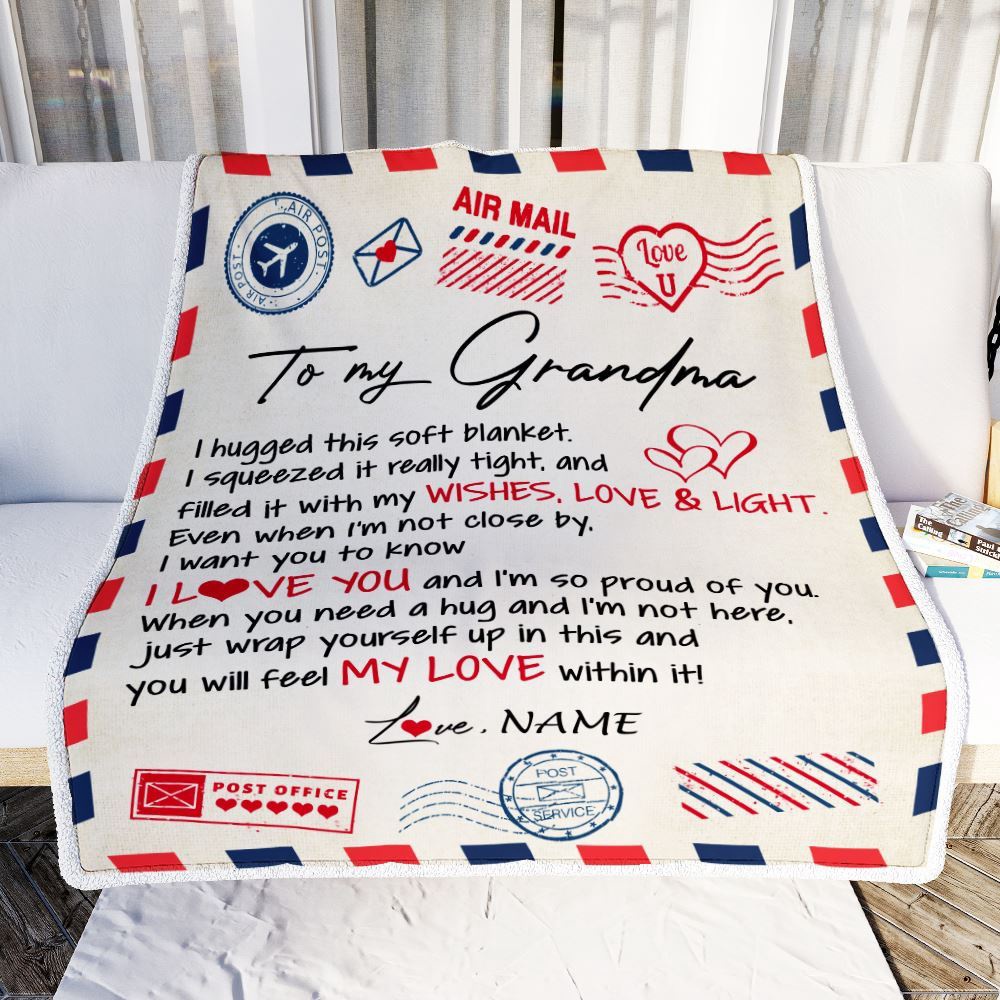 AIR POST
AIR POST
AIR MAIL
Love
U
To my Grandma
I hugged this soft blanket.
I squeezed it really tight, and
filled it with my WISHES, LOVE & LIGHT.
Even when I'm not close by,
I want you to know
I L❤VE YOU and I'm so proud of you.
When you need a hug and I'm not here,
just wrap yourself up in this and
you will feel MY LOVE within it!
L❤ve, NAME
POST OFFICE
POST
SERVICE
The
Calling
Paul